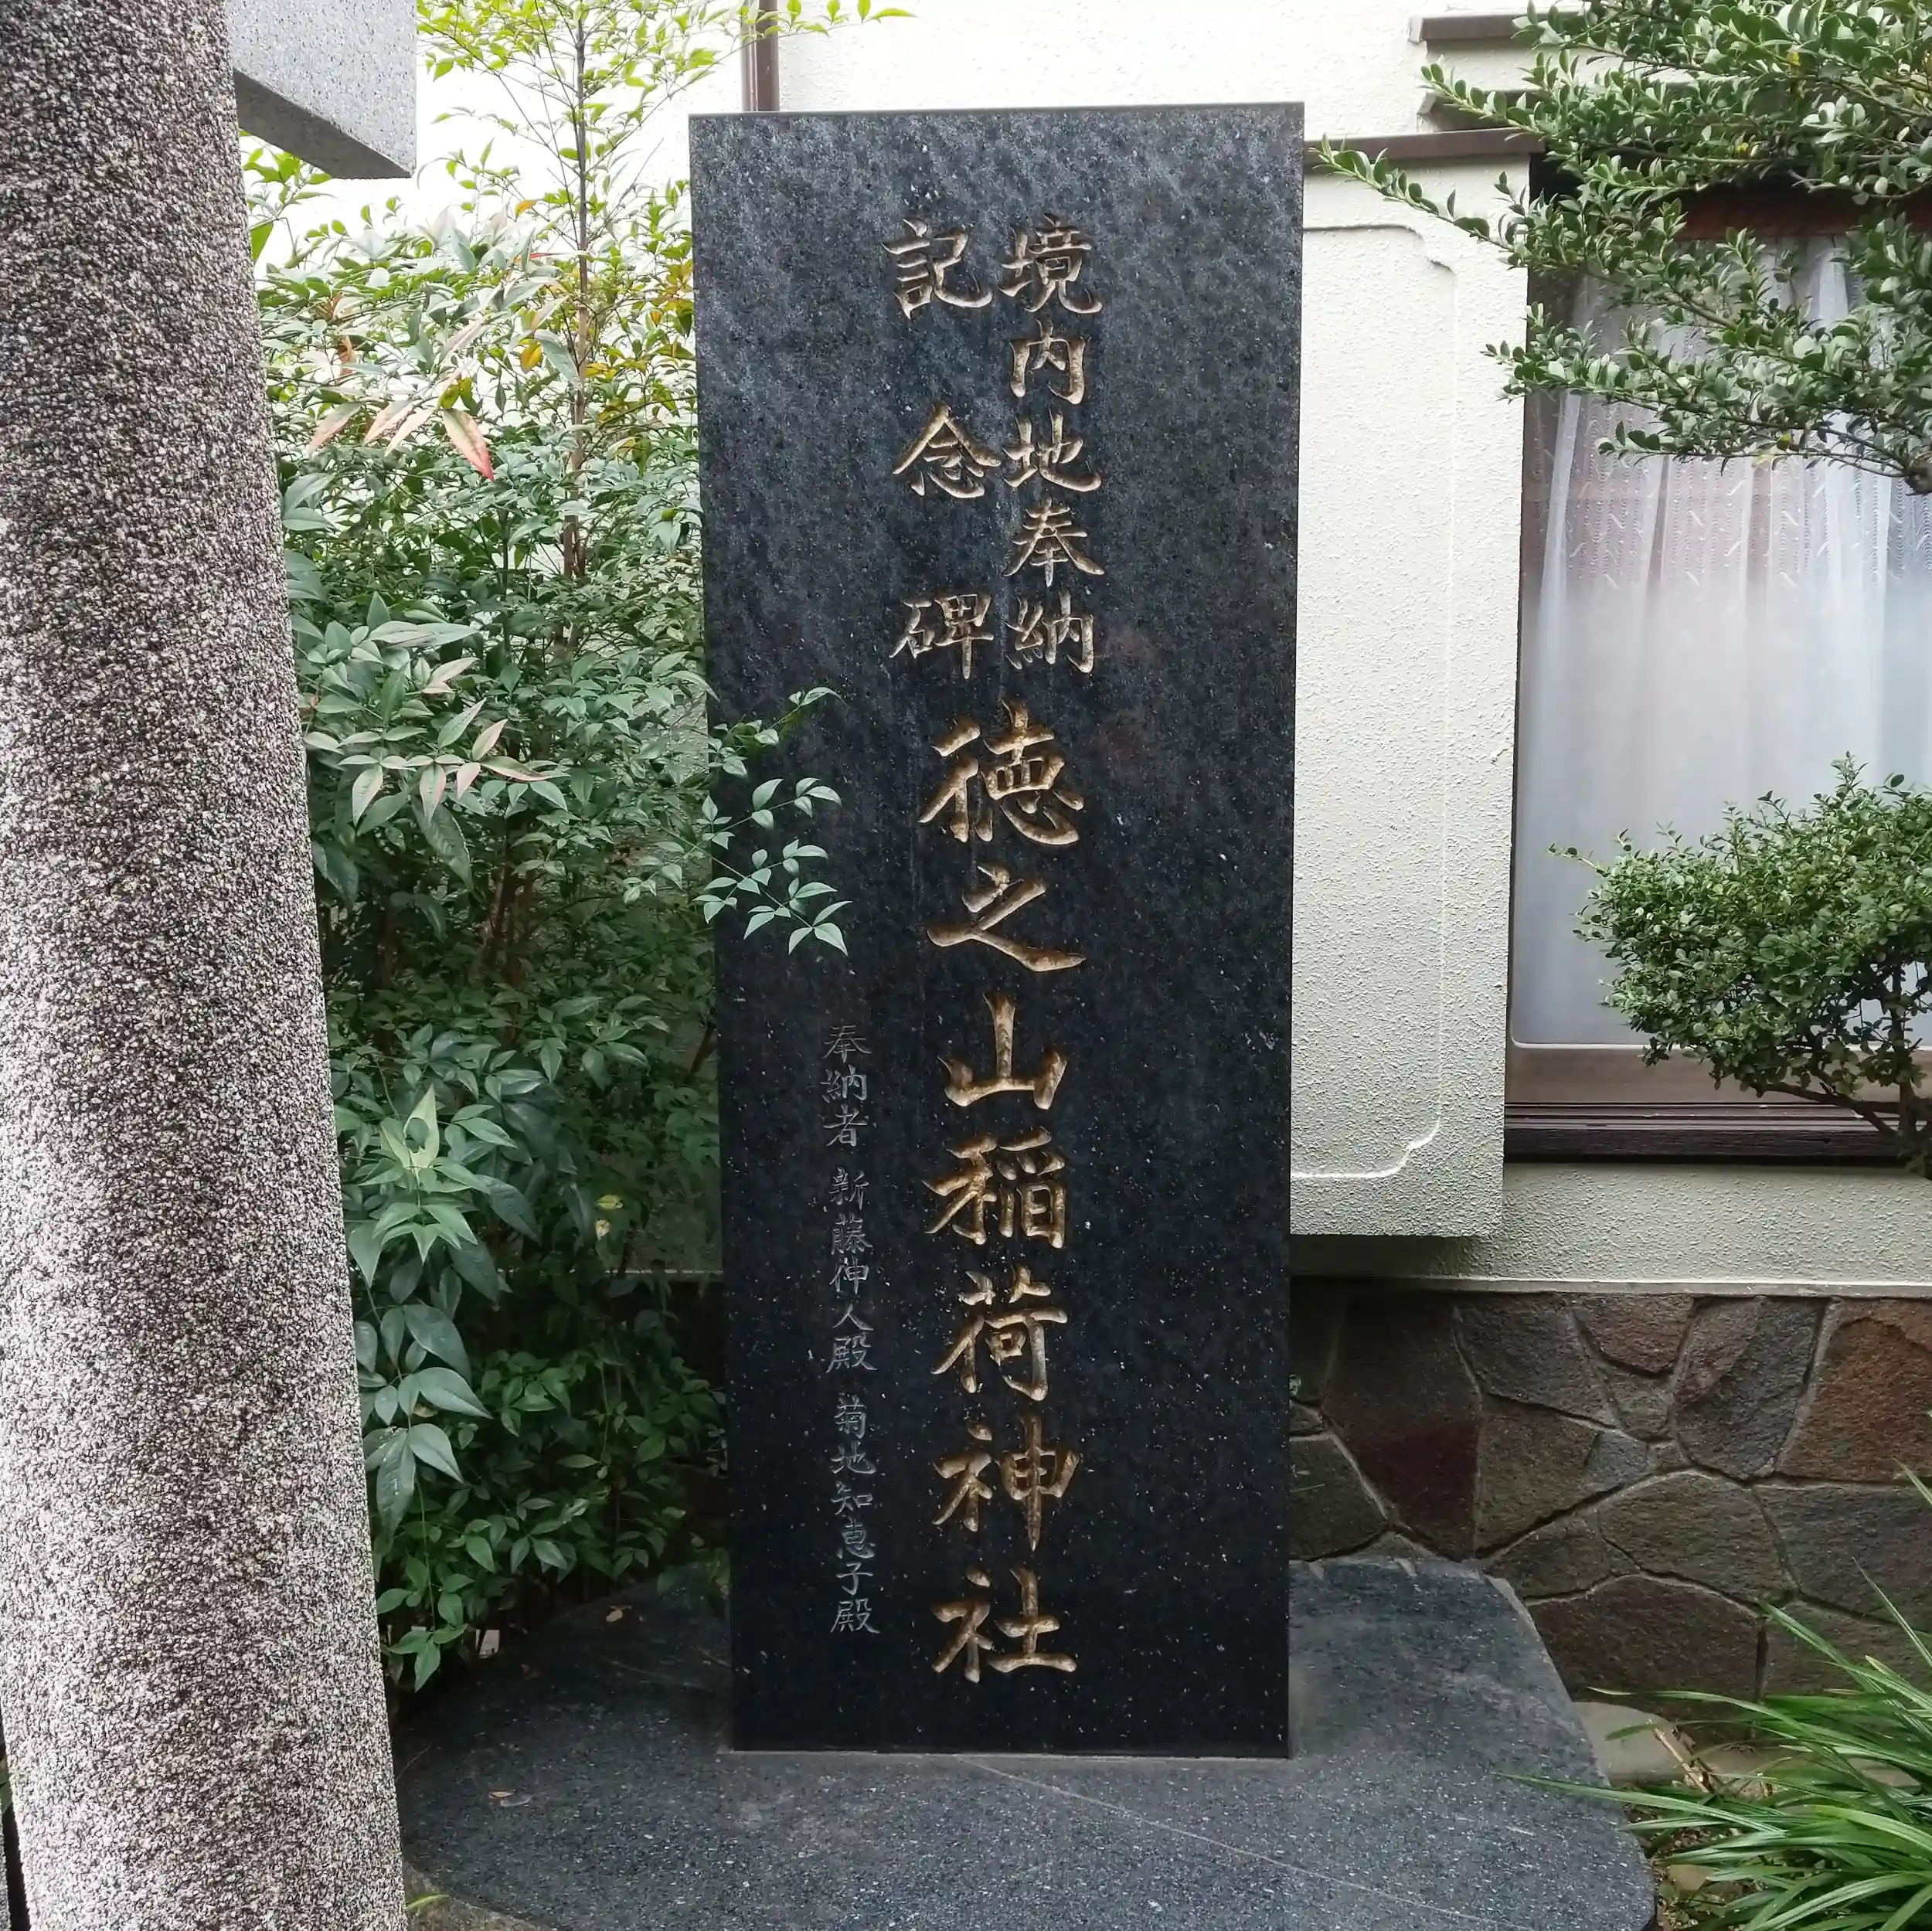 境内地奉納
記念碑
徳之山稲荷神社
奉納者 新藤伸人殿 菊地知恵子殿